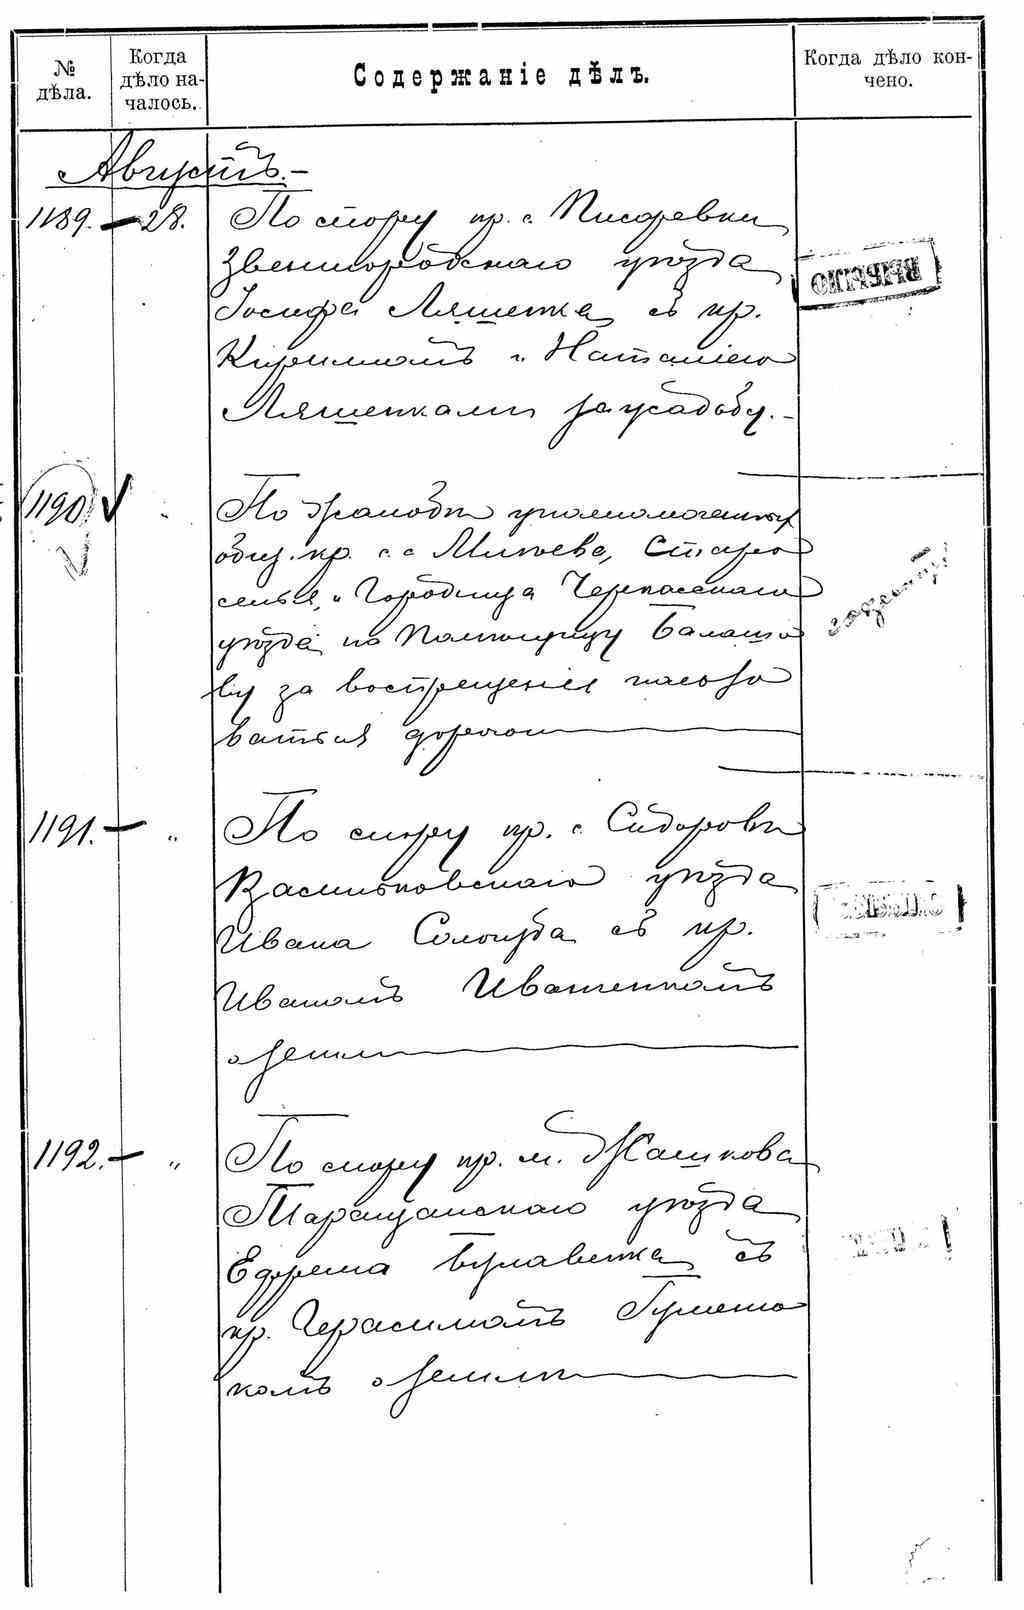 № дѣла.
Когда
дѣло на-
чалось.
Содержаніе дѣлъ.
Когда дѣло кон-
чено.
Августъ.-
1189. - 28. По спору кр. с. Писаревки
Звенигородскаго уѣзда
Іосифа Ляшенка съ кр.
Кирилломъ и Наталіею
Ляшенками за усадьбу.-
1190 ✓ По жалобѣ уполномоченныхъ
общ. кр. с.с. Млѣева, Старо
селья, и Городища Черкасскаго
уѣзда на Помѣщицу Балашо
ву за воспрещеніе пользо
ваться дорогою
1191. - " По спору кр. с. Сидоровки
Васильковскаго уѣзда
Ивана Сологуба съ кр.
Иваномъ Иваненкомъ
о землѣ
1192. - " По спору кр. м. Жашкова
Таращанскаго уѣзда
Ефрема Булавенка съ
кр. Герасимомъ Гумен
комъ о землѣ
ВЫБЫЛО